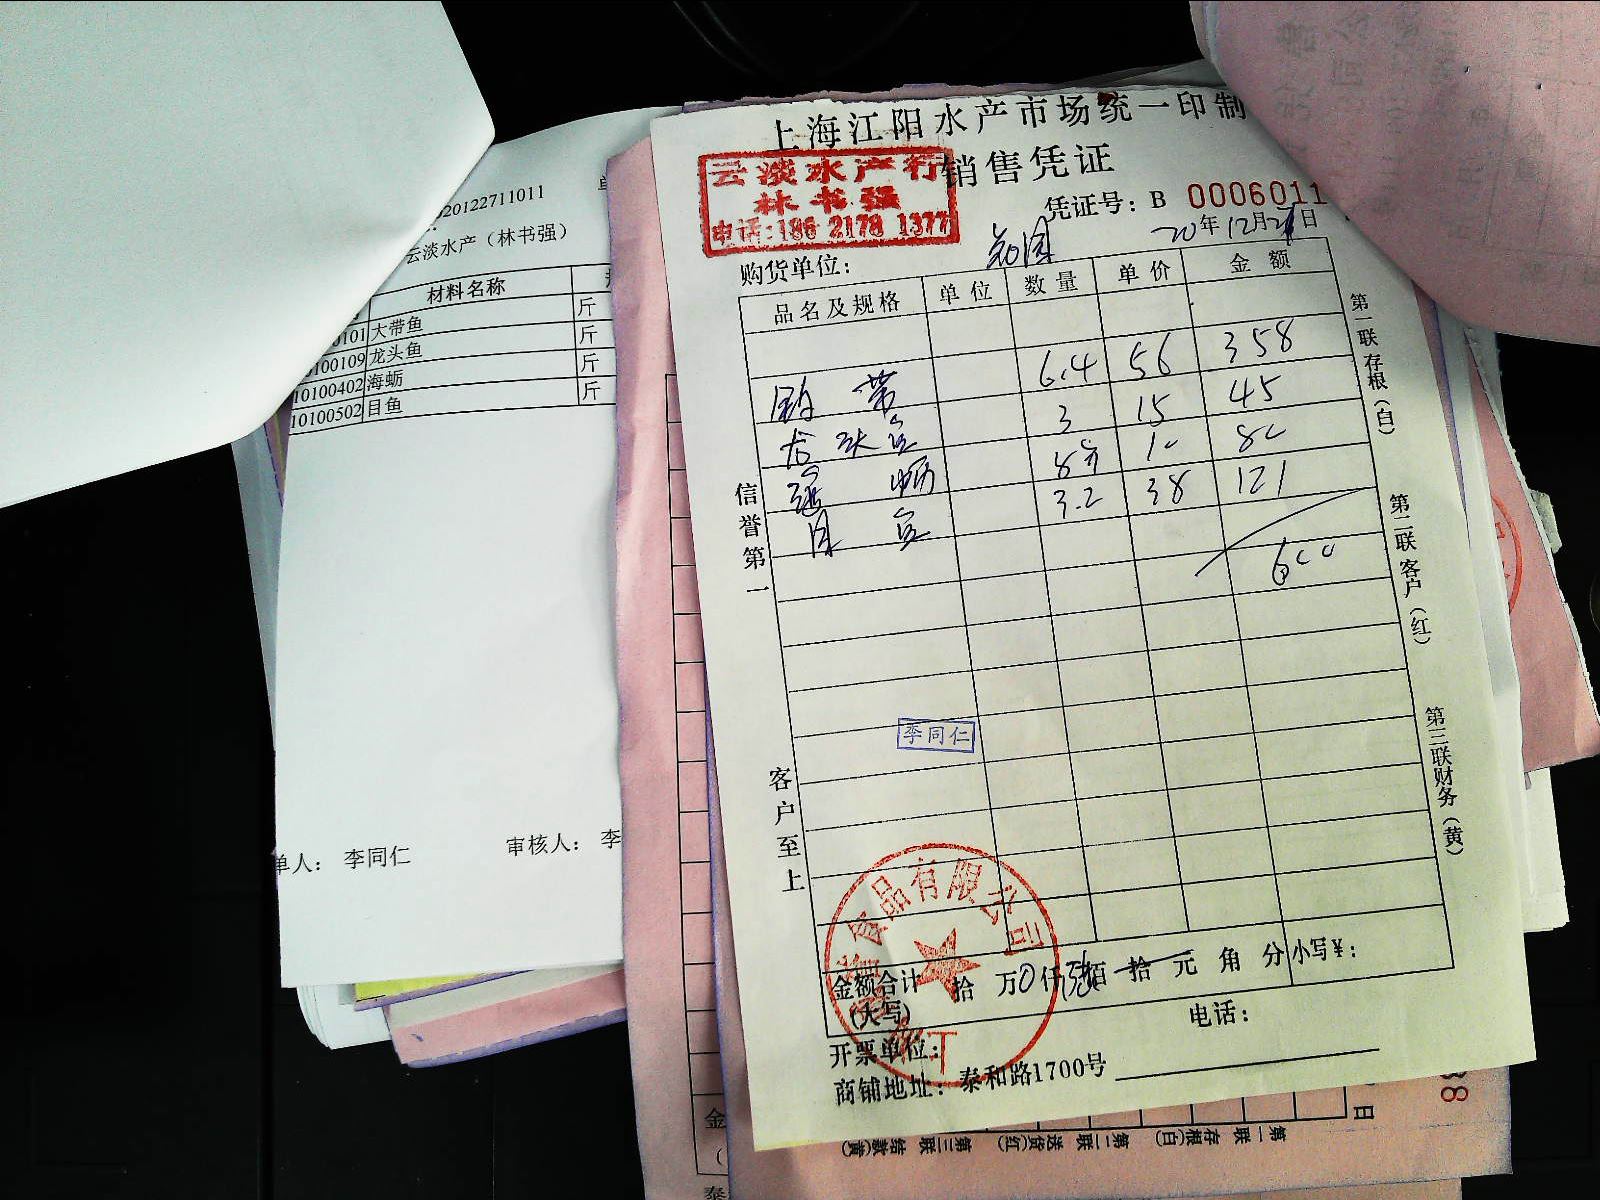 上海江阳水产市场统一印制
销售凭证
云淡水产行
林书强
电话:186 2178 1377
凭证号: B 0006011
20年12月27日
购货单位:
品名及规格 单位 数量 单价 金额
带 6.4 56 358
龙头鱼 3 15 45
海蛎 8斤 10 80
目鱼 3.2 38 121
600
信誉第一
客户至上
第一联存根(白)
第二联客户(红)
第三联财务(黄)
李同仁
食品有限公司
金额合计(大写) 拾 万0仟陆佰 拾 元 角 分 小写¥:
开票单位:
电话:
商铺地址: 泰和路1700号
20122711011
云淡水产（林书强）
材料名称
0101 大带鱼 斤
0100109 龙头鱼 斤
10100402 海蛎 斤
10100502 目鱼 斤
单人: 李同仁
审核人: 李
第一联 存根(白) 第二联 送货(红) 第三联 结款(黄)
日
金
泰